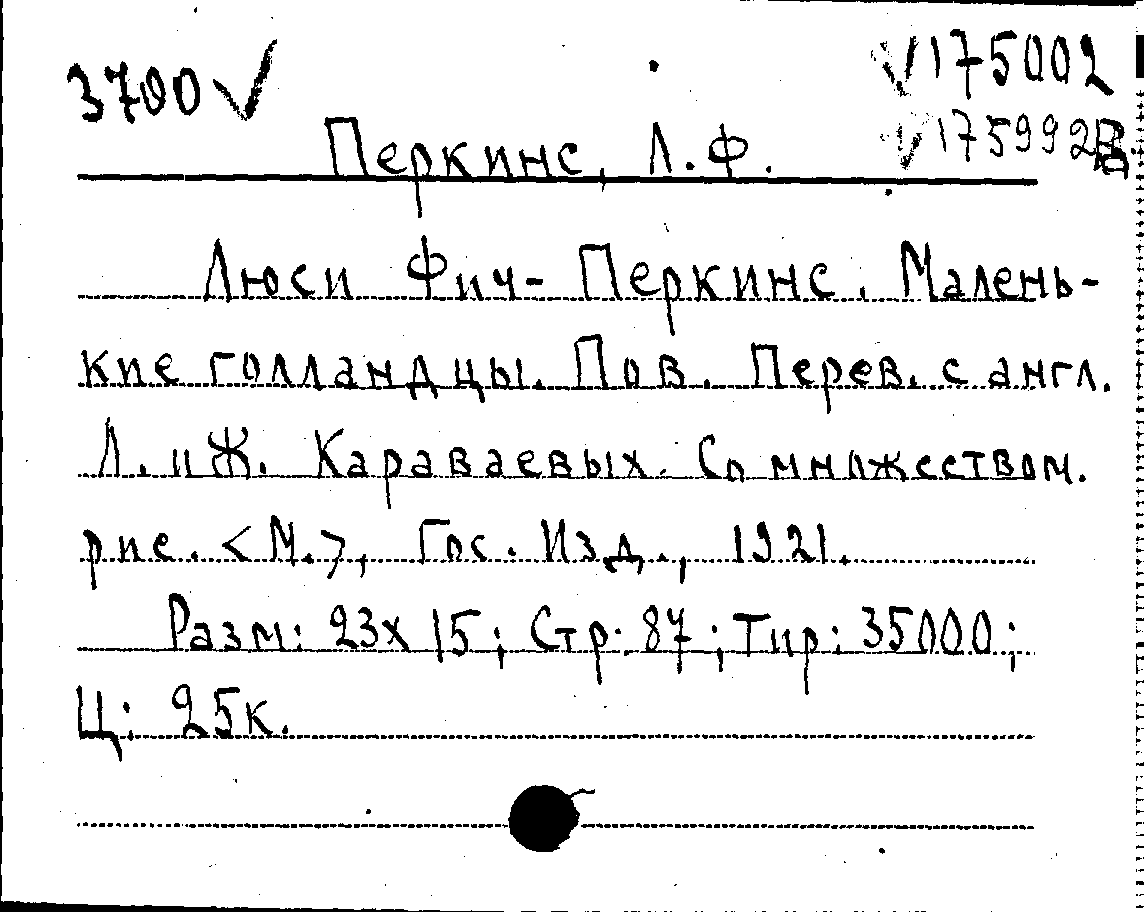 3700 √ √175002
√175992В.
Перкинс, Л.Ф.
Люси Фич-Перкинс. Малень-
кие голландцы. Пов. Перев. с англ.
Л. и Ж. Караваевых. Со множеством.
рис. <М.>, Гос. Изд., 1921.
Разм: 23х15; Стр: 87; Тир: 35000;
Ц: 25к.